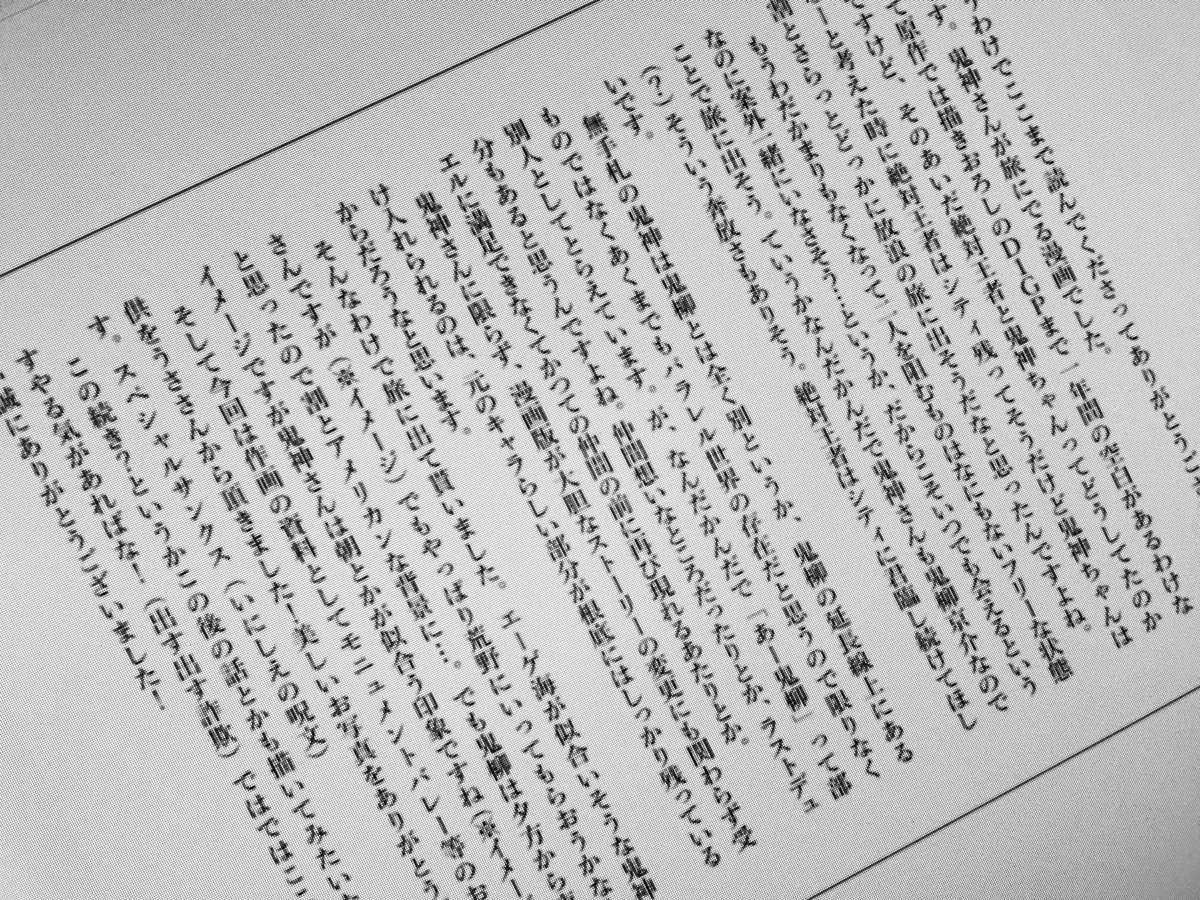 うわけでここまで読んでくださってありがとうござ
す。鬼神さんが旅にでる漫画でした。
て原作では描きおろしのD1GPまで一年間の空白があるわけな
ですけど、そのあいだ絶対王者と鬼神ちゃんってどうしてたのか
ーと考えた時に絶対王者はシティ残ってそうだけど鬼神ちゃんは
割とさらっとどっかに放浪の旅に出そうだなと思ったんですよね。
もうわだかまりもなくなって二人を阻むものはなにもないフリーな状態
なのに案外一緒にいなさそう…というか、だからこそいつでも会えるという
ことで旅に出そう。ていうかなんだかんだで鬼神さんも鬼柳京介なので
(?)そういう奔放さもありそう。絶対王者はシティに君臨し続けてほし
いです。
無手札の鬼神は鬼柳とは全く別というか、鬼柳の延長線上にある
ものではなくあくまでもパラレル世界の存在だと思うので限りなく
別人としてとらえています。が、なんだかんだで「あー鬼柳」って部
分もあると思うんですよね。仲間想いなところだったりとか、ラストデュ
エルに満足できなくてかつての仲間の前に再び現れるあたりとか。
鬼神さんに限らず、漫画版が大胆なストーリーの変更にも関わらず受
け入れられるのは、元のキャラらしい部分が根底にはしっかり残っている
からだろうなと思います。
そんなわけで旅に出て貰いました。エーゲ海が似合いそうな鬼神
さんですが(※イメージ)でもやっぱり荒野にいってもらおうかな
と思ったので割とアメリカンな背景に…。でも鬼柳は夕方から
イメージですが鬼神さんは朝とかが似合う印象ですね(※イメー
そして今回は作画の資料としてモニュメントバレー等のお
供をうささんから頂きました！美しいお写真をありがとう
す。スペシャルサンクス(いにしえの呪文)
この続き？というかこの後の話とかも描いてみたいと
すやる気があればな！(出す出す詐欺)ではではここ
誠にありがとうございました！